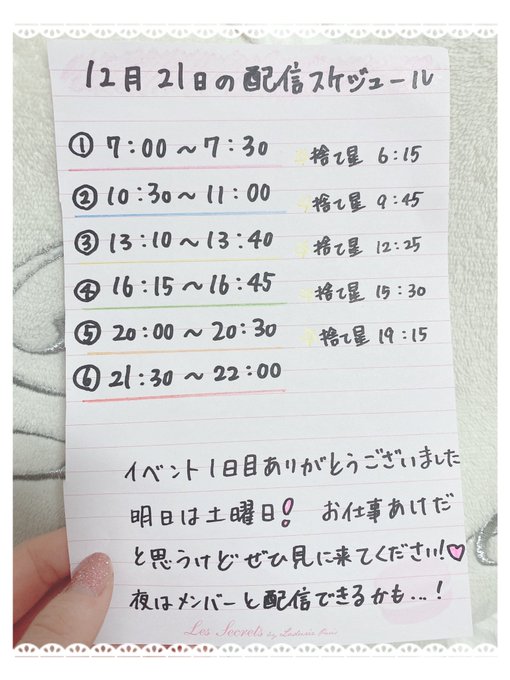 12月21日の配信スケジュール
① 7:00〜7:30 捨て星 6:15
② 10:30〜11:00 捨て星 9:45
③ 13:10〜13:40 捨て星 12:25
④ 16:15〜16:45 捨て星 15:30
⑤ 20:00〜20:30 捨て星 19:15
⑥ 21:30〜22:00
イベント1日目ありがとうございました
明日は土曜日! お仕事あけだ
と思うけどぜひ見に来てください!♡
夜はメンバーと配信できるかも...!
Les Secrets by